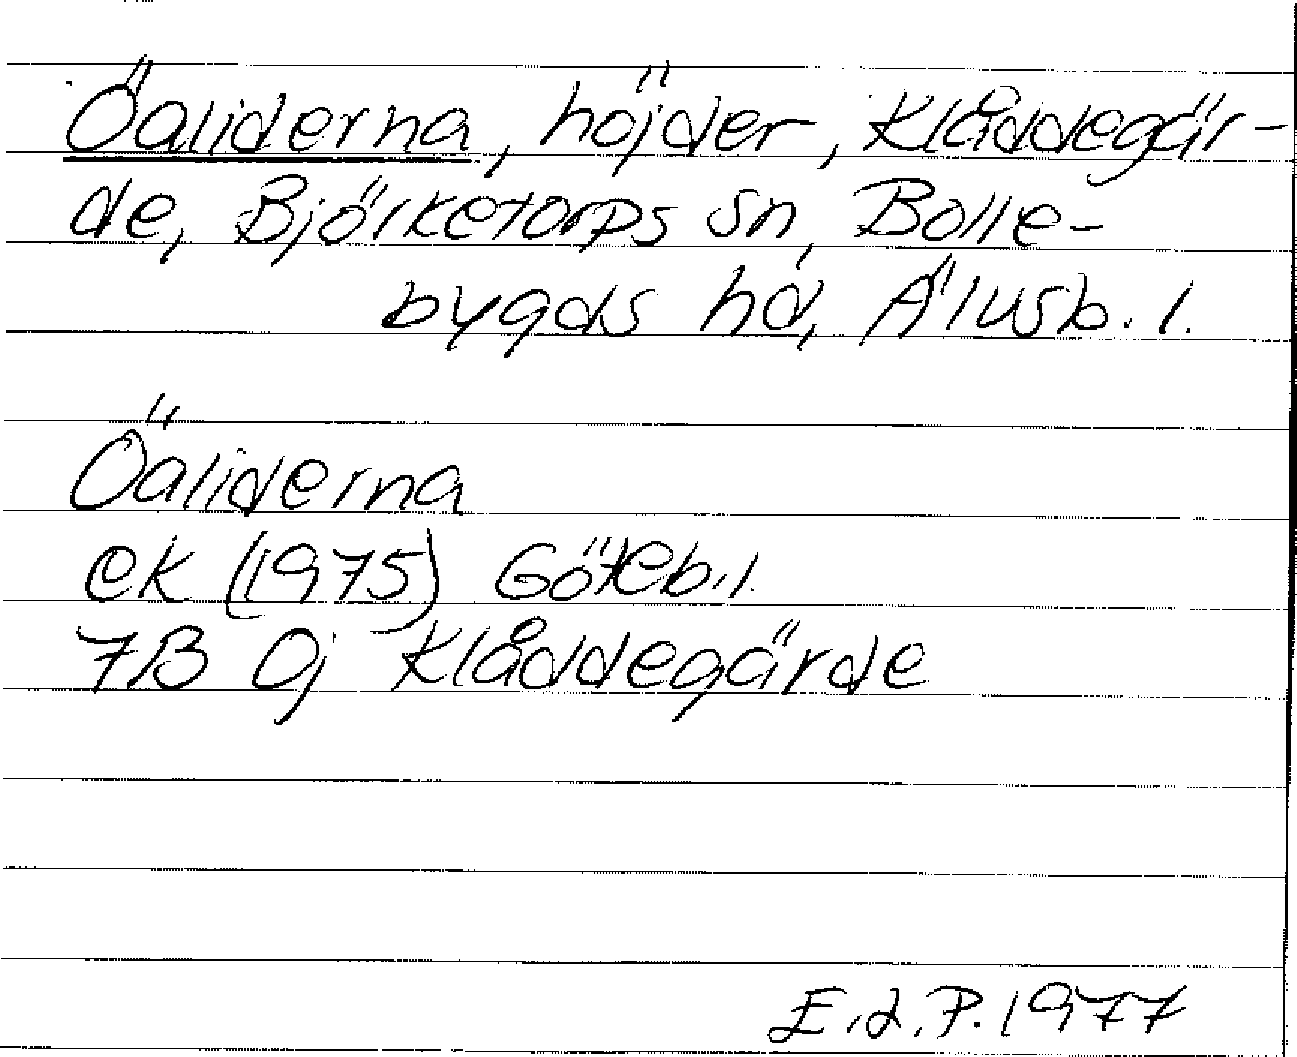 Öaliderna, höjder, Klåddegär-
de, Björketorps sn, Bolle-
bygds hd, Älvsb. l.
Öaliderna
ek (1975) Göteb. l.
7B 0j Klåddegärde
E.L.P. 1977